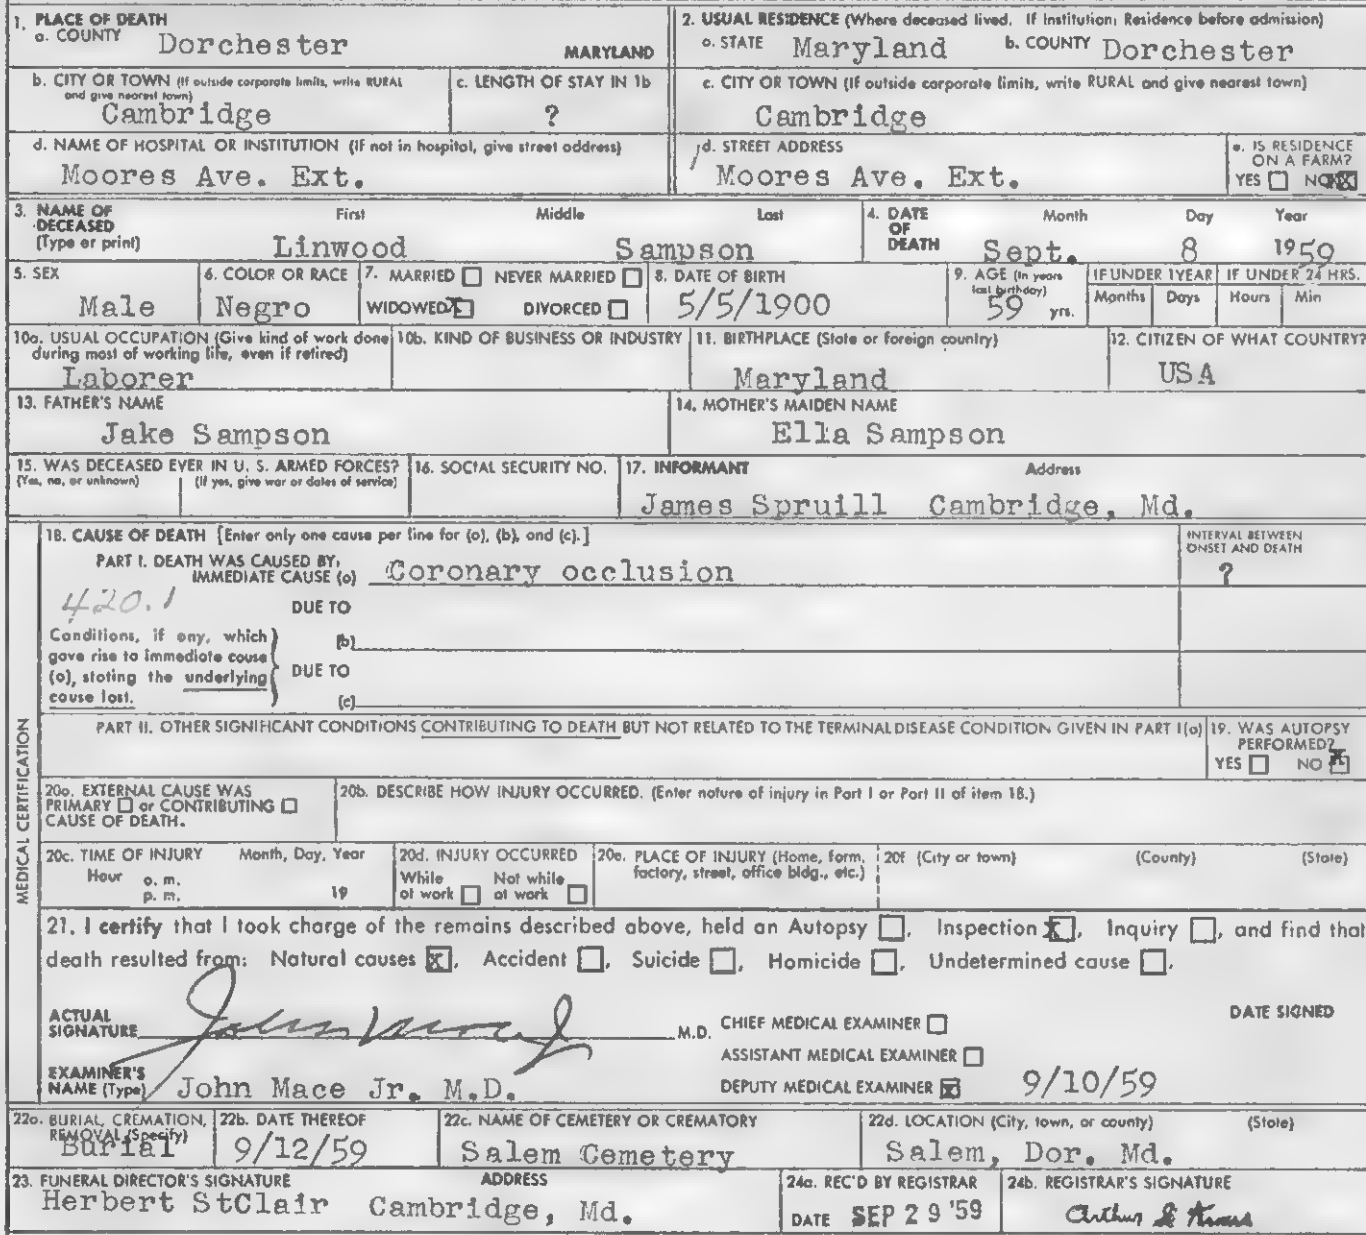 1. PLACE OF DEATH
a. COUNTY Dorchester MARYLAND
2. USUAL RESIDENCE (Where deceased lived. If Institution: Residence before admission)
a. STATE Maryland b. COUNTY Dorchester
b. CITY OR TOWN (If outside corporate limits, write RURAL and give nearest town)
Cambridge
c. LENGTH OF STAY IN 1b
?
c. CITY OR TOWN (If outside corporate limits, write RURAL and give nearest town)
Cambridge
d. NAME OF HOSPITAL OR INSTITUTION (If not in hospital, give street address)
Moores Ave. Ext.
d. STREET ADDRESS
Moores Ave. Ext.
e. IS RESIDENCE
ON A FARM?
YES NO X
3. NAME OF
DECEASED
(Type or print)
First Middle Last
Linwood Sampson
4. DATE
OF
DEATH
Month Day Year
Sept. 8 1959
5. SEX
Male
6. COLOR OR RACE
Negro
7. MARRIED NEVER MARRIED
WIDOWED X DIVORCED
8. DATE OF BIRTH
5/5/1900
9. AGE (In years
last birthday)
59 yrs.
IF UNDER 1 YEAR
Months Days
IF UNDER 24 HRS.
Hours Min
10a. USUAL OCCUPATION (Give kind of work done
during most of working life, even if retired)
Laborer
10b. KIND OF BUSINESS OR INDUSTRY
11. BIRTHPLACE (State or foreign country)
Maryland
12. CITIZEN OF WHAT COUNTRY?
USA
13. FATHER'S NAME
Jake Sampson
14. MOTHER'S MAIDEN NAME
Ella Sampson
15. WAS DECEASED EVER IN U. S. ARMED FORCES?
(Yes, no, or unknown) (If yes, give war or dates of service)
16. SOCIAL SECURITY NO.
17. INFORMANT Address
James Spruill Cambridge, Md.
MEDICAL CERTIFICATION
18. CAUSE OF DEATH [Enter only one cause per line for (a), (b), and (c).]
PART I. DEATH WAS CAUSED BY:
IMMEDIATE CAUSE (a) Coronary occlusion
INTERVAL BETWEEN
ONSET AND DEATH
?
420.1
DUE TO
Conditions, if any, which
gave rise to immediate cause
(a), stating the underlying
cause last.
(b)
DUE TO
(c)
PART II. OTHER SIGNIFICANT CONDITIONS CONTRIBUTING TO DEATH BUT NOT RELATED TO THE TERMINAL DISEASE CONDITION GIVEN IN PART I(a)
19. WAS AUTOPSY
PERFORMED?
YES NO X
20a. EXTERNAL CAUSE WAS
PRIMARY or CONTRIBUTING
CAUSE OF DEATH.
20b. DESCRIBE HOW INJURY OCCURRED. (Enter nature of injury in Part I or Part II of item 18.)
20c. TIME OF INJURY Month, Day, Year
Hour a. m.
p. m. 19
20d. INJURY OCCURRED
While Not while
at work at work
20e. PLACE OF INJURY (Home, farm,
factory, street, office bldg., etc.)
20f (City or town) (County) (State)
21. I certify that I took charge of the remains described above, held an Autopsy , Inspection X, Inquiry , and find that
death resulted from: Natural causes X, Accident , Suicide , Homicide , Undetermined cause .
ACTUAL
SIGNATURE John Mace Jr M.D.
CHIEF MEDICAL EXAMINER
ASSISTANT MEDICAL EXAMINER
DEPUTY MEDICAL EXAMINER X
DATE SIGNED
9/10/59
EXAMINER'S
NAME (Type) John Mace Jr. M.D.
22a. BURIAL, CREMATION,
REMOVAL (Specify)
Burial
22b. DATE THEREOF
9/12/59
22c. NAME OF CEMETERY OR CREMATORY
Salem Cemetery
22d. LOCATION (City, town, or county) (State)
Salem, Dor. Md.
23. FUNERAL DIRECTOR'S SIGNATURE ADDRESS
Herbert StClair Cambridge, Md.
24a. REC'D BY REGISTRAR
DATE SEP 29 '59
24b. REGISTRAR'S SIGNATURE
Arthur